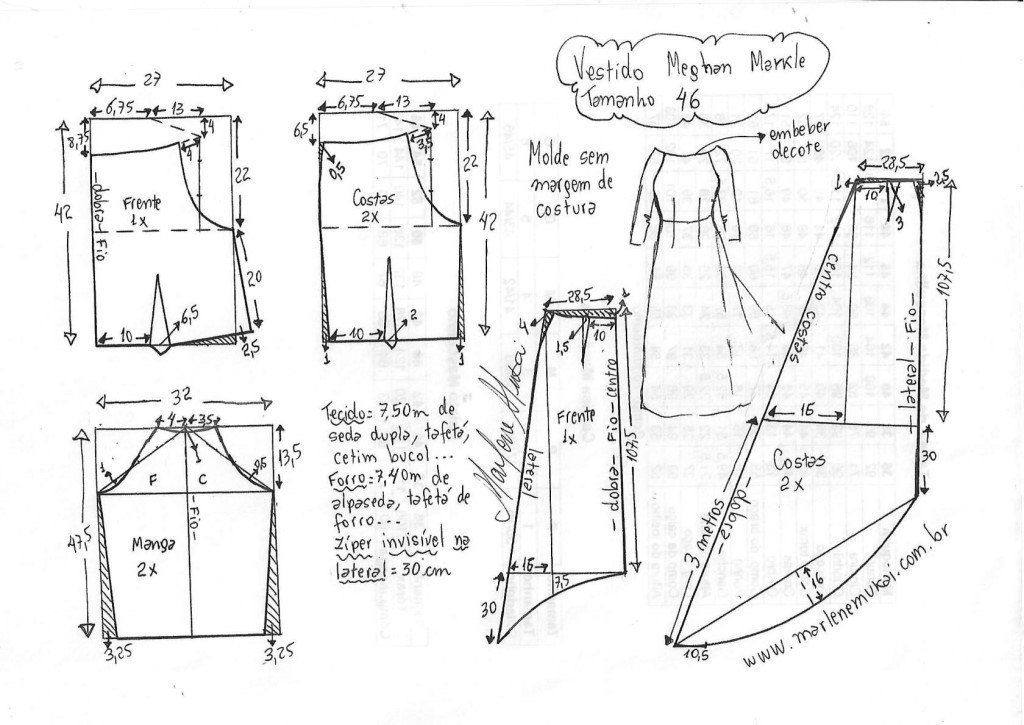 Vestido Meghan Markle
Tamanho 46
embeber
decote
Molde sem
margem de
costura
27
6,75
13
4
8,75
4
42
22
dobra - Fio
Frente
1x
20
10
6,5
2,5
27
6,75
13
4
6,5
3,5
0,5
22
42
Costas
2x
10
2
1
1
32
4
3,5
1
1
0,5
13,5
F
C
47,5
Fio
Manga
2x
3,25
3,25
Tecido= 7,50m de
seda dupla, tafetá,
cetim bucol...
Forro= 7,40m de
alpaseda, tafetá de
forro...
Zíper invisível na
lateral = 30 cm
28,5
1
4
1,5
10
Frente
1x
lateral
dobra - Fio - centro
107,5
15
7,5
30
28,5
1
2,5
10
3
centro costas
lateral - Fio
107,5
15
30
Costas
2x
3 metros
dobra
16
10,5
www.marlenemukai.com.br